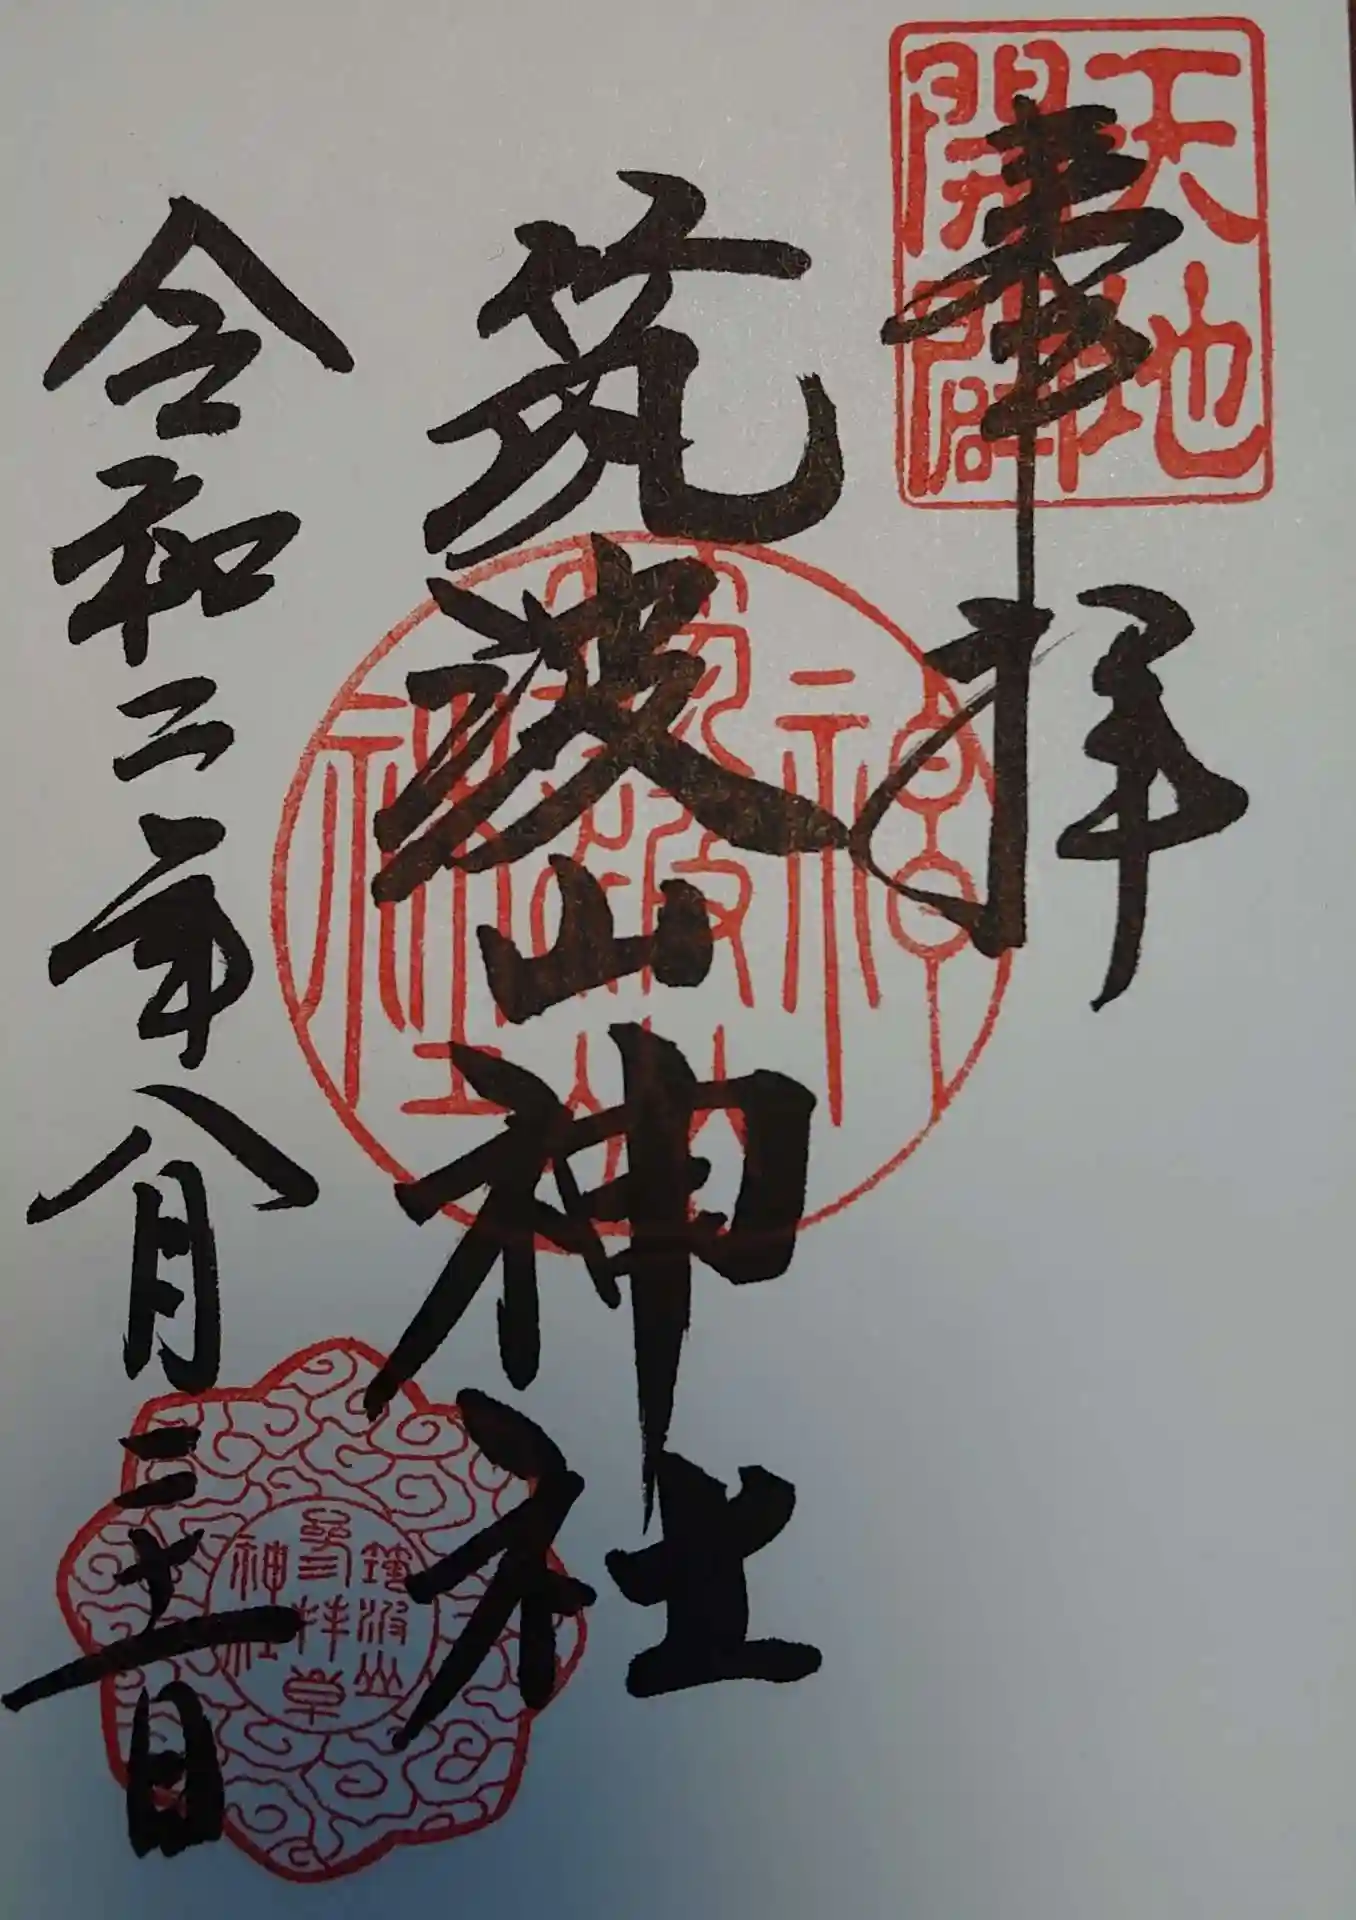 天地
開闢
奉拝
筑波山神社
筑波山
神社
令和二年八月三十一日
筑波山
参拝章
神社